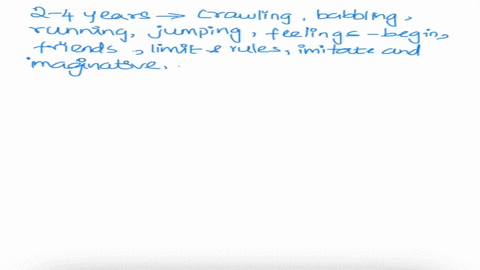 2-4 years → Crawling, babbling,
running, jumping, feelings - begin,
friends, limit & rules, imitate and
imaginative.